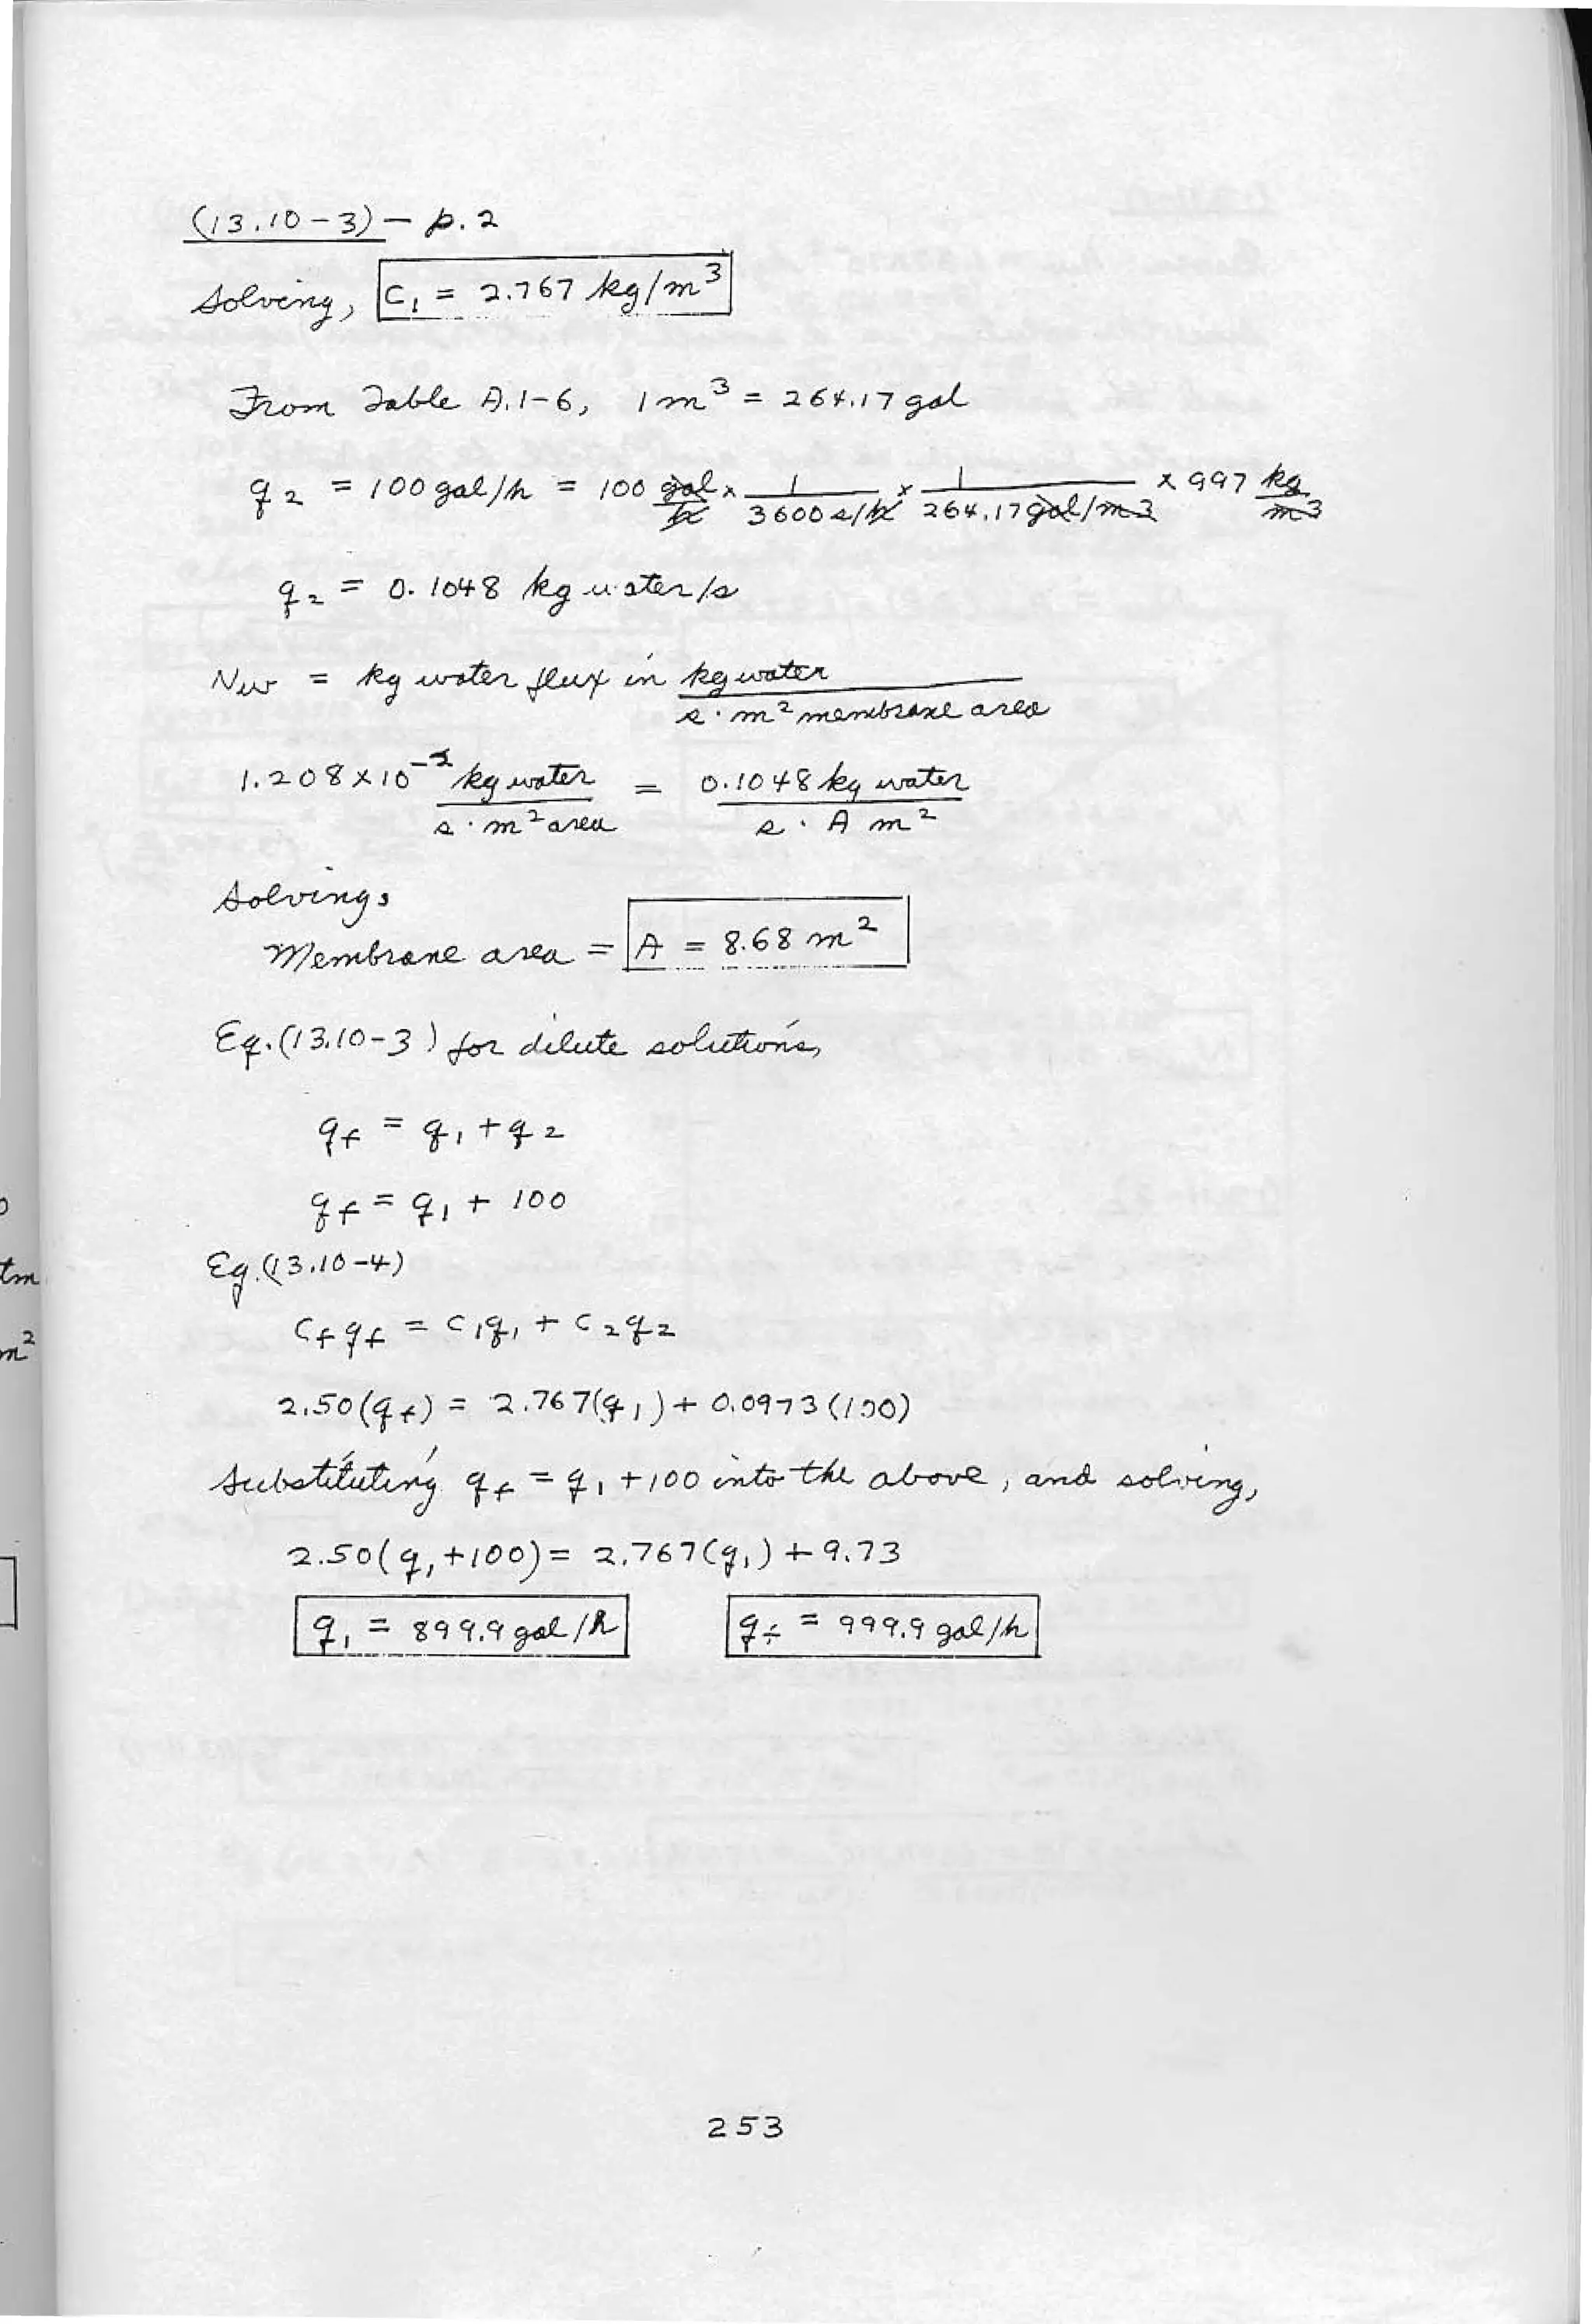 (13.10-3) - p.2
Solving, C₁ = 2.767 kg/m³
From Table A.1-6, 1 m³ = 264.17 gal
q₂ = 100 gal/h = 100 gal/h × 1/3600 s/h × 1/264.17 gal/m³ × 997 kg/m³
q₂ = 0.1048 kg water/s
Nw = kg water flux in kg water / s·m² membrane area
1.208×10⁻² kg water / s·m² area = 0.1048 kg water / s·A m²
Solving,
Membrane area = A = 8.68 m²
Eq.(13.10-3) for dilute solutions,
qf = q₁ + q₂
qf = q₁ + 100
Eq.(13.10-4)
Cf qf = C₁q₁ + C₂q₂
2.50(qf) = 2.767(q₁) + 0.0973(100)
Substituting qf = q₁ + 100 into the above, and solving,
2.50(q₁+100) = 2.767(q₁) + 9.73
q₁ = 899.9 gal/h qf = 999.9 gal/h
tm
m²
253